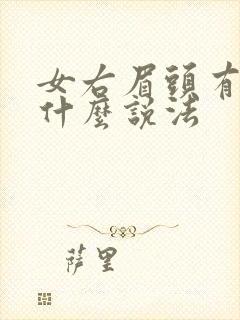 女右眉頭有
什麼說法
薩里